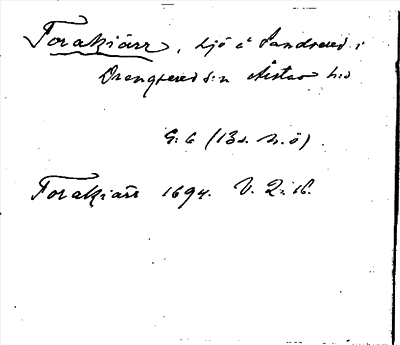 Torakiärr, sjö å Sandsered i
Drengsered s:n Åstao h:d
G: 6 (13 s. h. ö).
Torakiärr 1694. V. 2: 16.